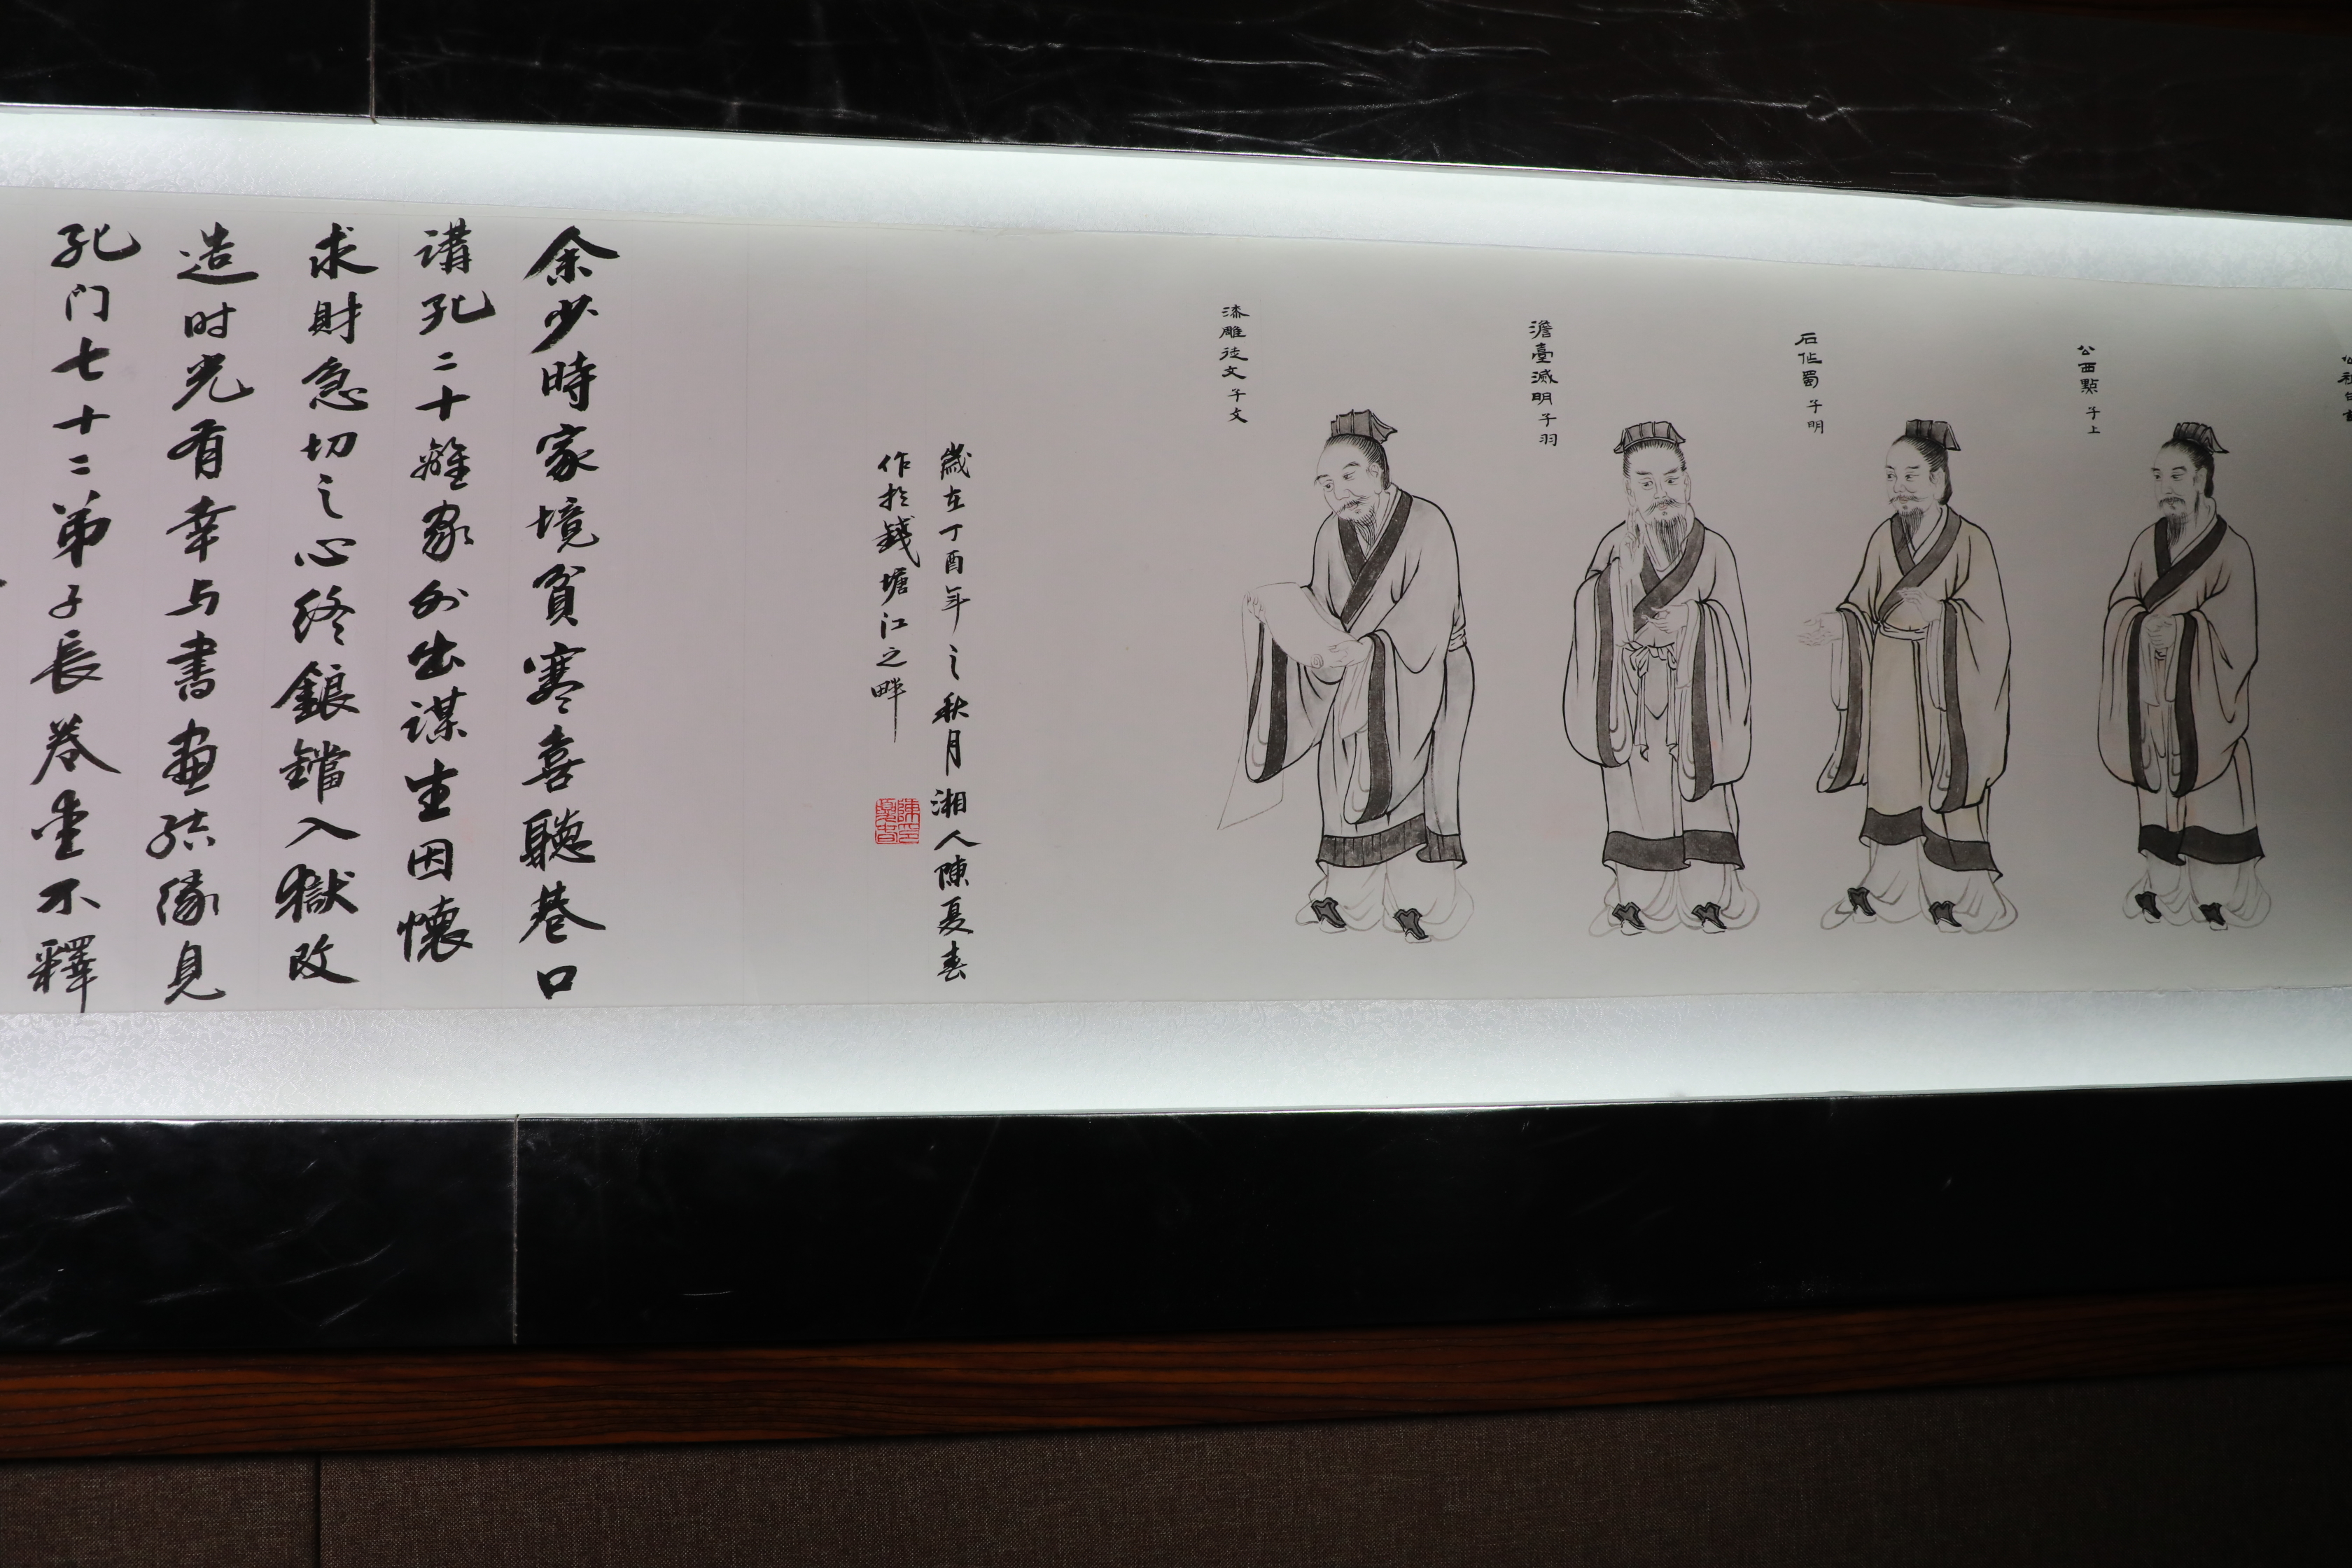 公西點 子上
石作蜀 子明
澹臺滅明 子羽
漆雕徒文 子文
歲在丁酉年之秋月湘人陳夏春
作於錢塘江之畔
余少時家境貧寒喜聽巷口
講孔二十離家外出謀生因懷
求財急切之心終鋃鐺入獄改
造时光有幸与書畫结缘見
孔门七十二弟子長卷愛不釋